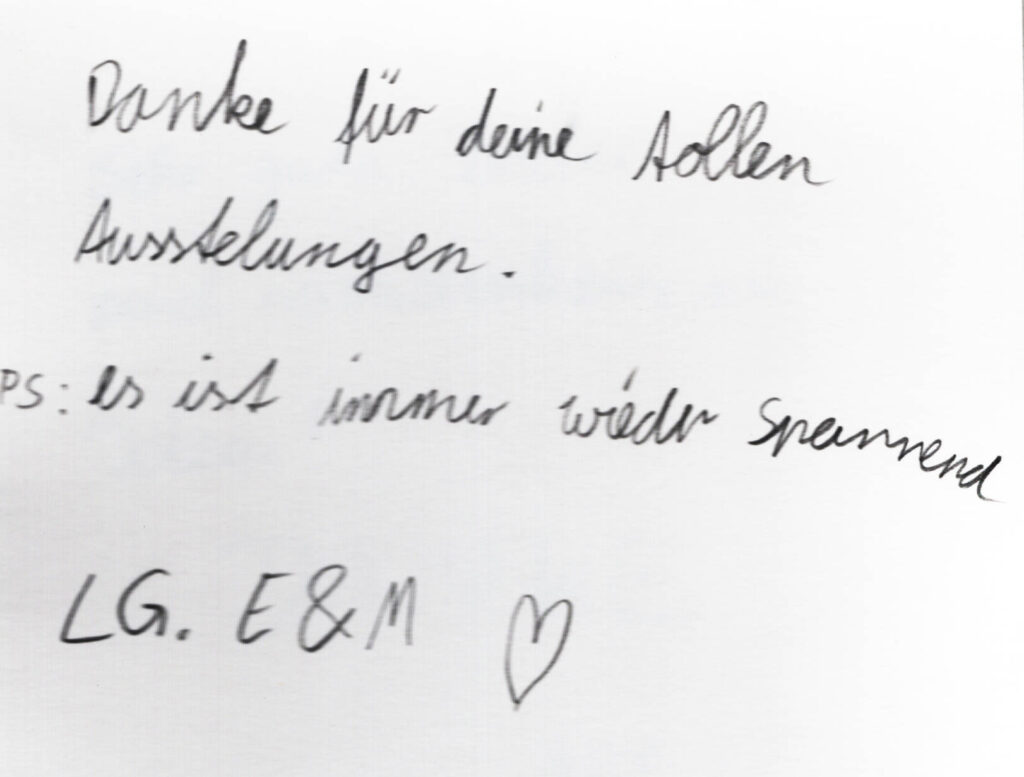 Danke für deine tollen
Ausstelungen.
PS: es ist immer wieder Spannend
LG. E & M ♡